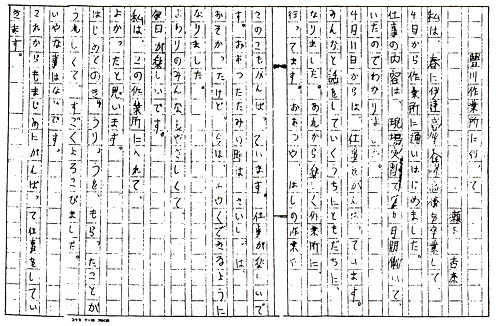 堅川作業所に行って
杏奈
私は、春に伊達高等養護学校を卒業して
4月から作業所に通いはじめました。
仕事の内容は、現場実習で 月間働いて
いたのでわかりました。
4月11日からは、仕事をがんばっています。
みんなと話をしていくうちにともだちに
なりました。あれから楽しく作業所に
行ってます。おおつや はしの作業で
このごろもがんばっています。仕事が楽しいで
す。おおつたたみの時は、さいしょは、
おそかったけど、今は、はやくできるように
なりました。
まわりのみんなもやさしくて
毎日が楽しいです。
私は、この作業所に入れて、
よかったと思います。
はじめてのきゅうりょうを、もらったことが
うれしくて、すごくよろこびました。
いやな事はないです。
これからもまじめにがんばって仕事をしてい
きます。